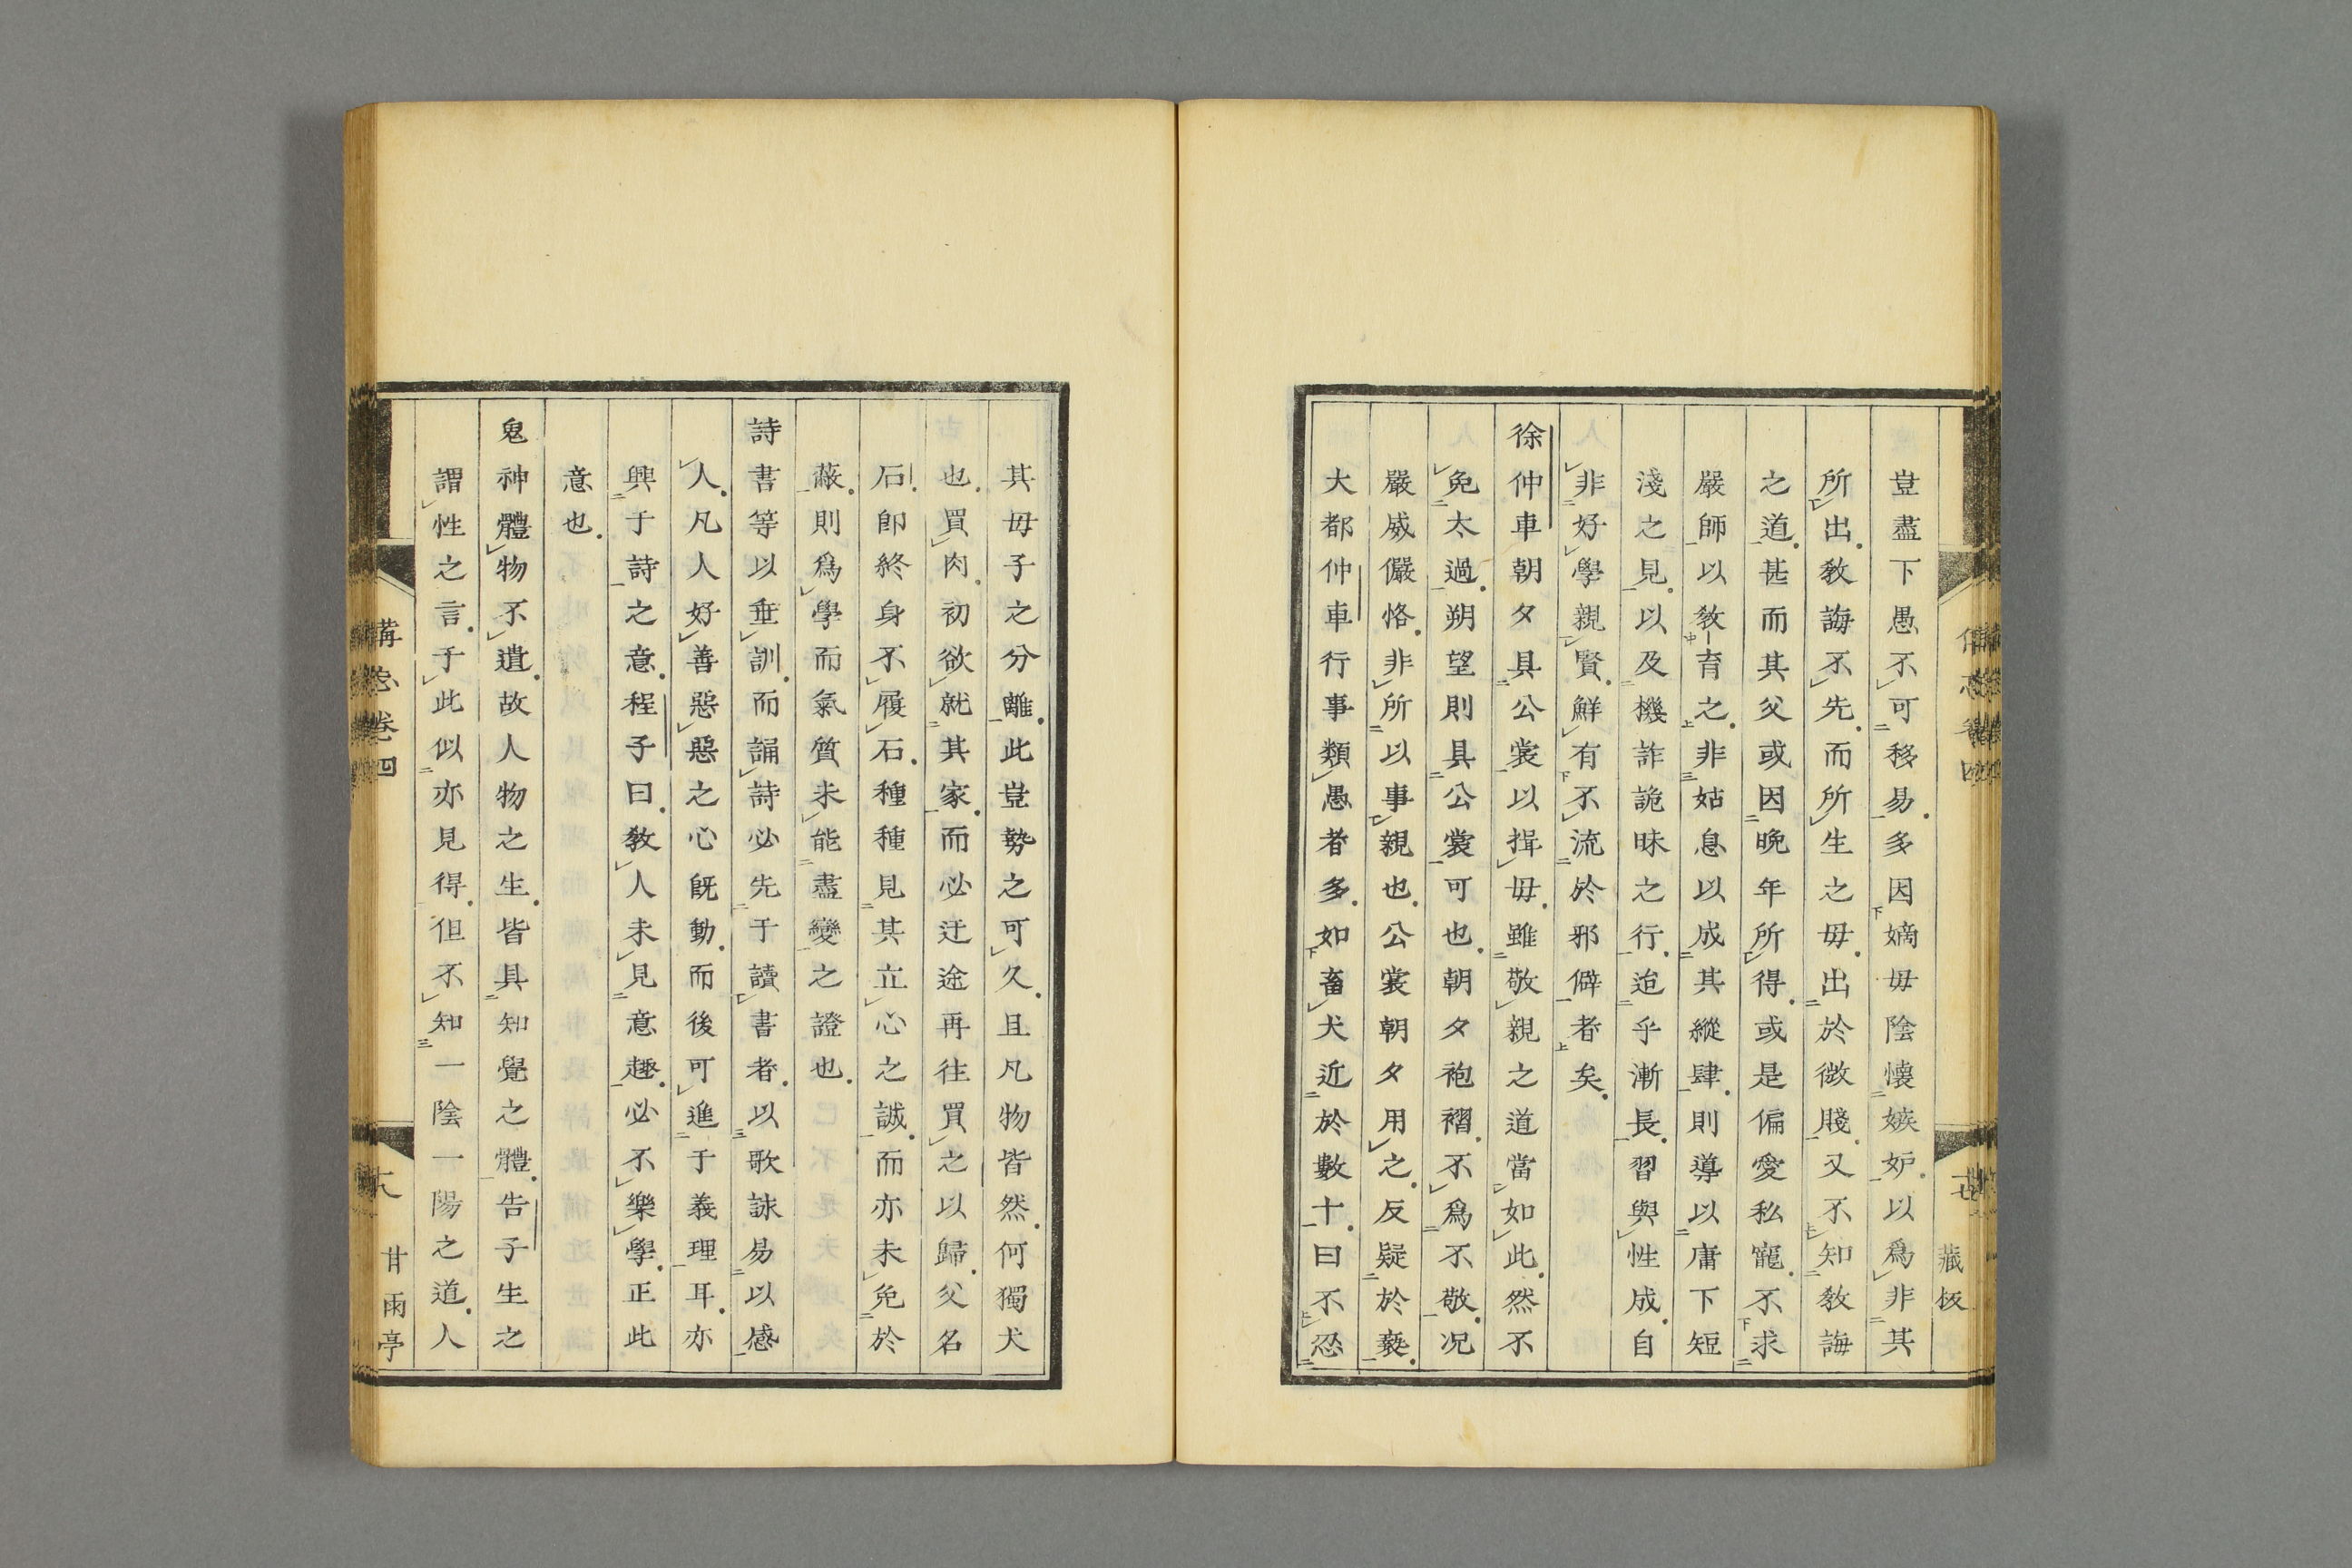 豈盡下愚不可移易多因嫡毋陰懷嫉妒以爲非其
所出教誨不先而所生之毋出於微賤又不知教誨
之道甚而其父或因晩年所得或是偏愛私寵不求
嚴師以教育之非姑息以成其縱肆則導以庸下短
淺之見以及機詐詭昧之行迨乎漸長習與性成自
非好學親賢鮮有不流於邪僻者矣
徐仲車朝夕具公裳以揖毋雖敬親之道當如此然不
免太過朔望則具公裳可也朝夕袍褶不爲不敬況
嚴威儼恪非所以事親也公裳朝夕用之反疑於褻
大都仲車行事類愚者多如畜犬近於數十曰不忍
藏板
其毋子之分離此豈勢之可久且凡物皆然何獨犬
也買肉初欲就其家而必迂途再往買之以歸父名
石卽終身不履石種種見其立心之誠而亦未免於
蔽則爲學而氣質未能盡變之證也
詩書等以垂訓而誦詩必先于讀書者以歌詠易以感
人凡人好善惡惡之心旣動而後可進于義理耳亦
興于詩之意程子曰教人未見意趣必不樂學正此
意也
鬼神體物不遺故人物之生皆具知覺之體告子生之
謂性之言于此似亦見得但不知一陰一陽之道人
講忘卷四
十八
甘雨亭